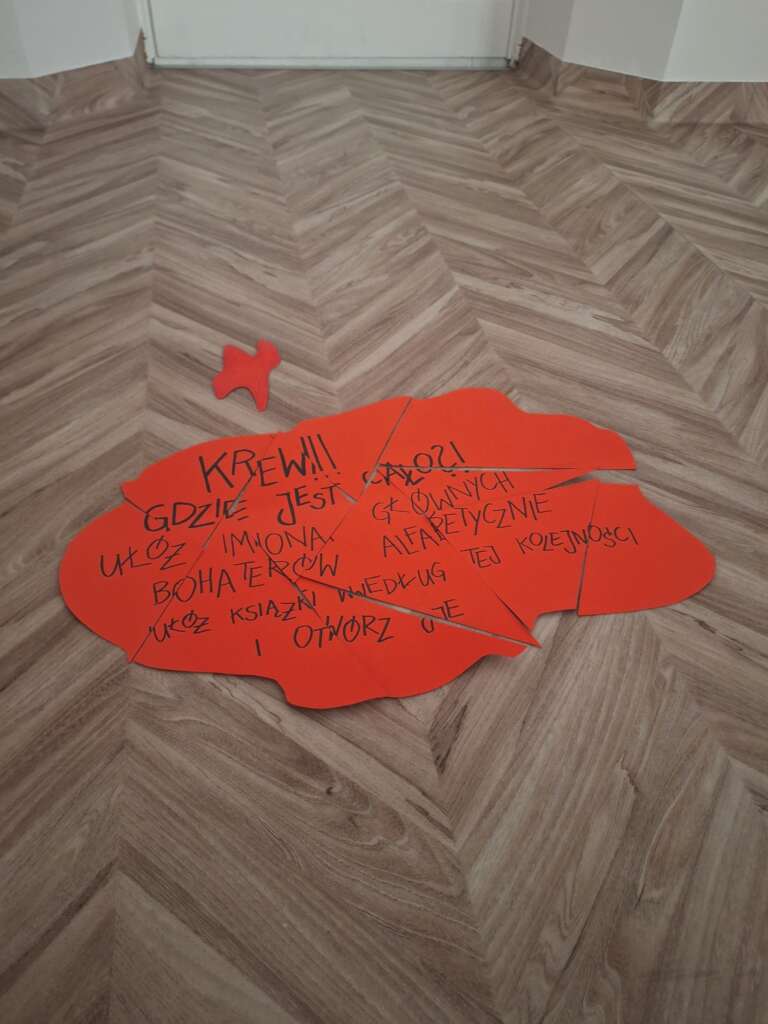 KREW!!!
GDZIE JEST CIAŁO?!
UŁÓŻ IMIONA GŁÓWNYCH
BOHATERÓW ALFABETYCZNIE
UŁÓŻ KSIĄŻKI WEDŁUG TEJ KOLEJNOŚCI
I OTWÓRZ JE